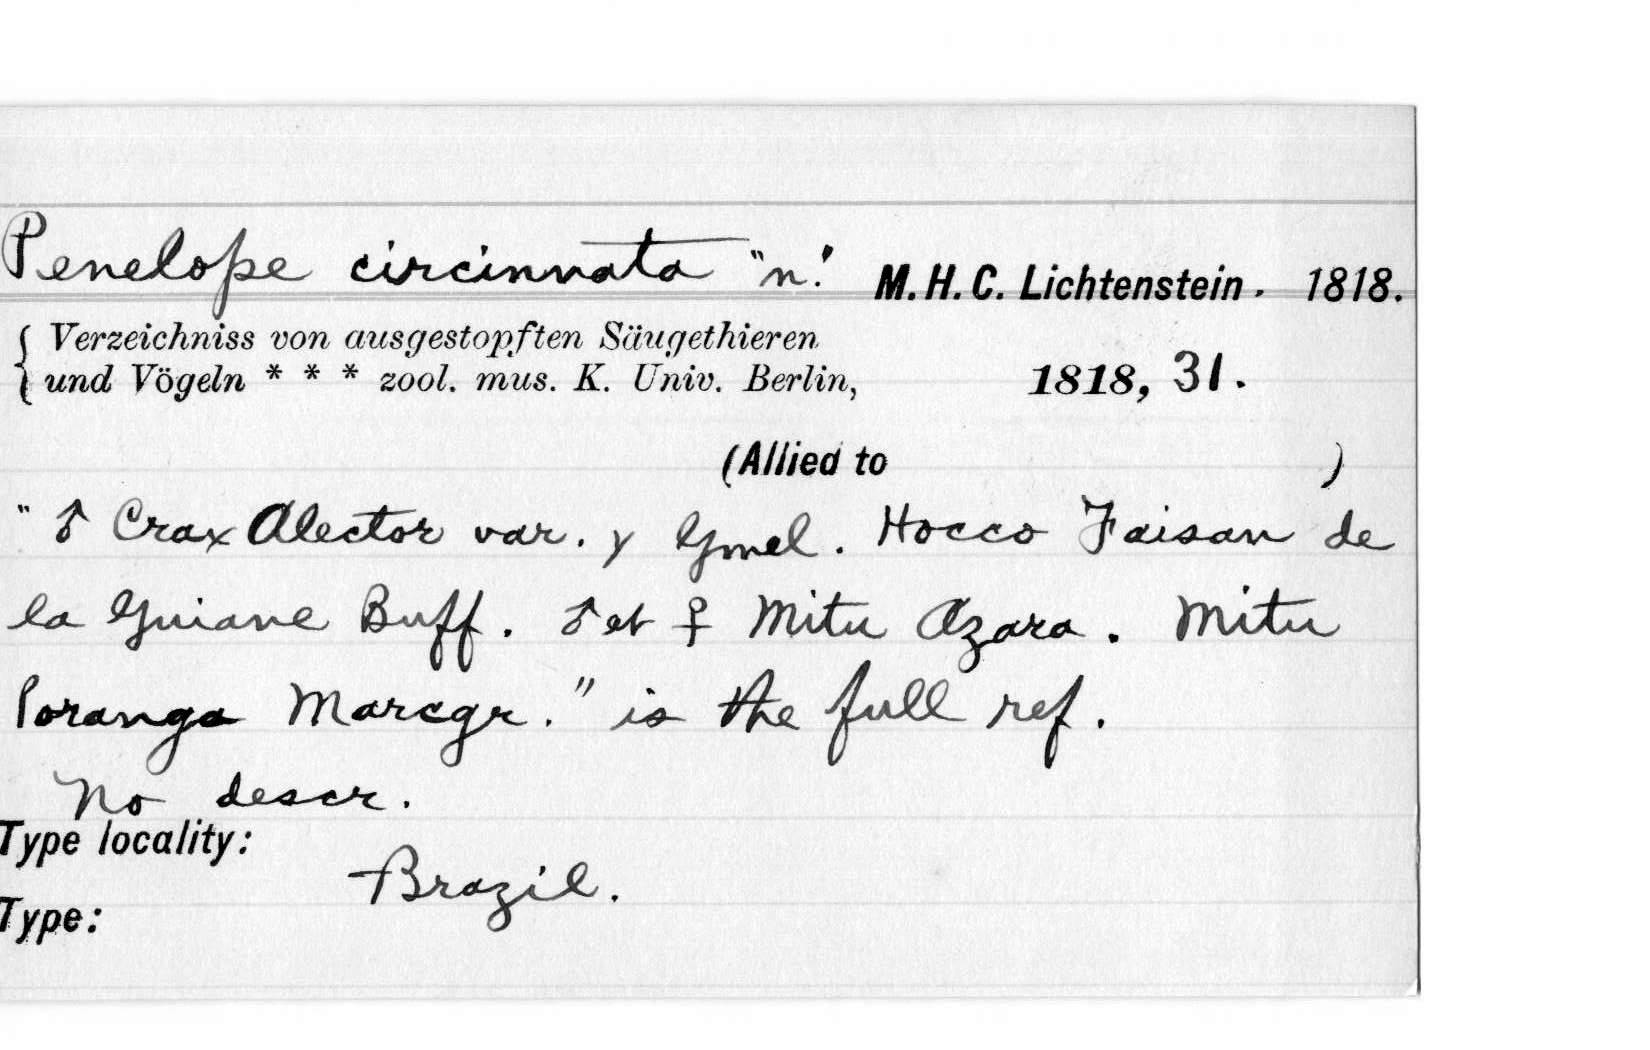 Penelope circinnata "n."  M. H. C. Lichtenstein. 1818.
{ Verzeichniss von ausgestopften Säugethieren
{ und Vögeln * * * zool. mus. K. Univ. Berlin, 1818, 31.
(Allied to )
" ♂ Crax Alector var. γ Gmel. Hocco Faisan de
la Guiane Buff. ♂ et ♀ Mitu Azara. Mitu
Poranga Marcgr." is the full ref.
No descr.
Type locality:
Brazil.
Type: